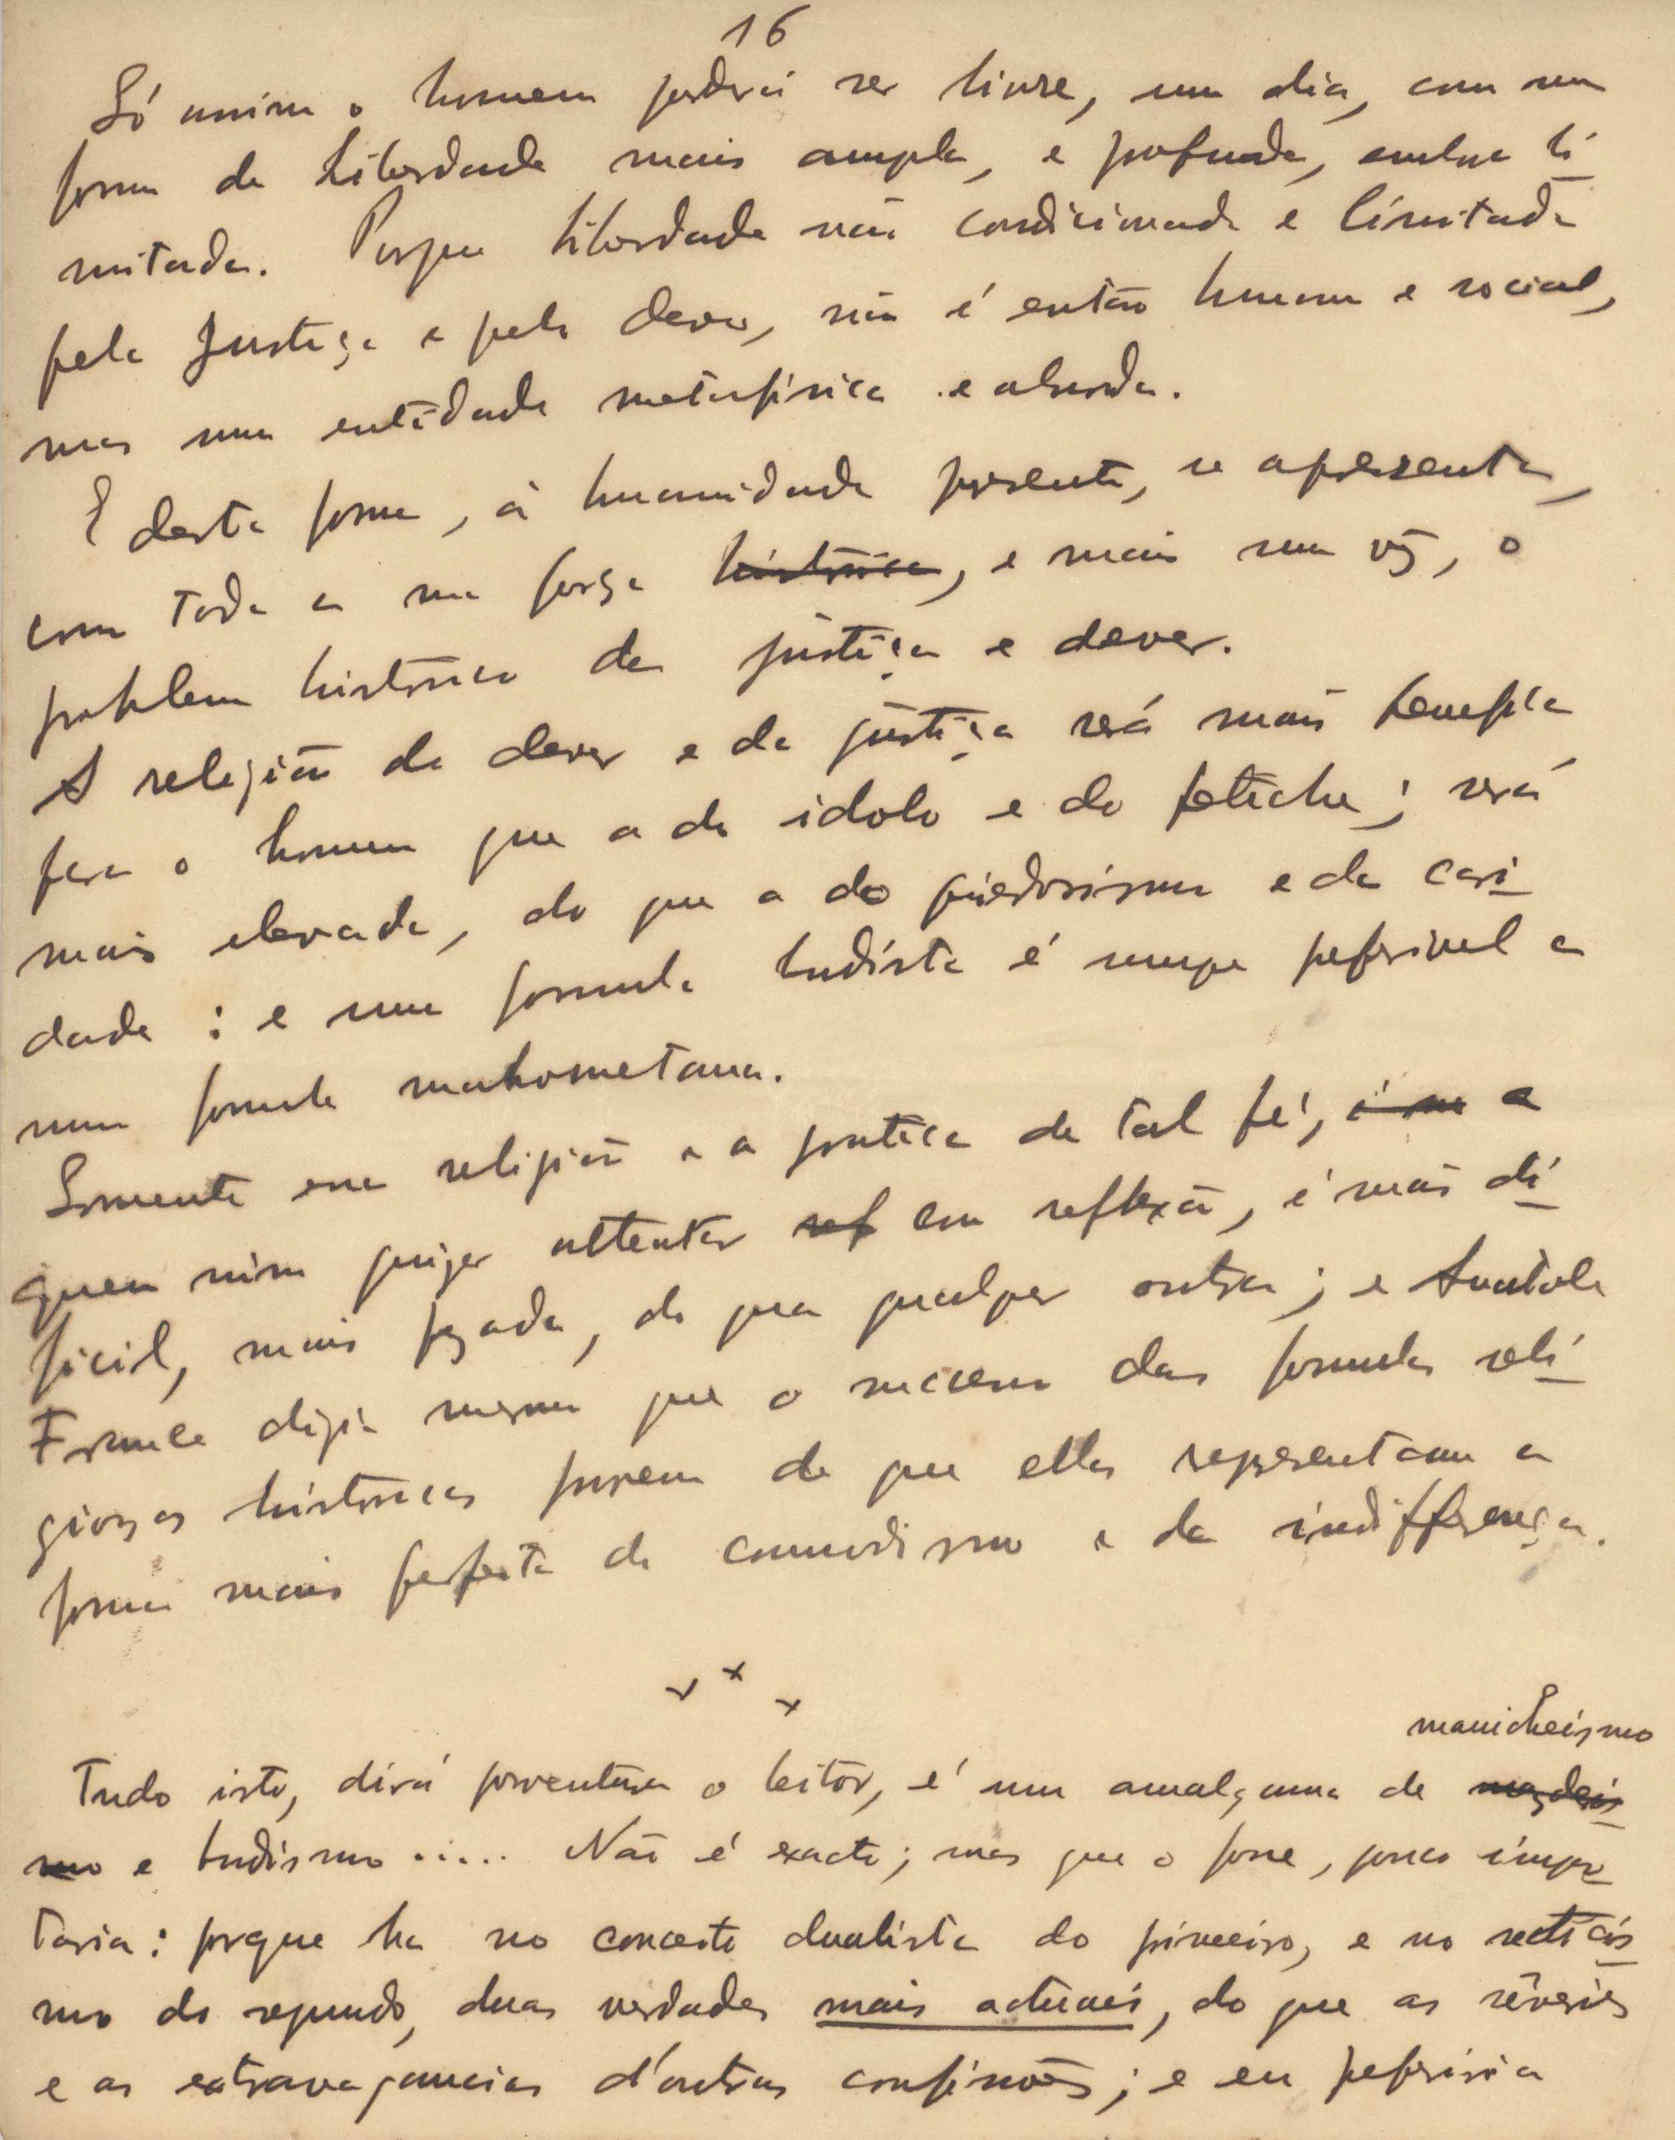 16
Só assim o homem poderá ser livre, um dia, com uma
forma de liberdade mais ampla, e profunda, embora li
mitada. Porque liberdade não condicionada e limitada
pela Justiça e pelo dever, não é então humana e social,
mas uma entidade metafisica e absurda.
E desta forma, á humanidade presente, se apresenta,
com toda a sua força historica, e mais uma vez, o
problema historico da justiça e dever.
A religião do dever e da justiça será mais benefica
para o homem que a do idolo e do fetiche; será
mais elevada, do que a do piedosismo e da cari
dade: e uma formula budista é sempre preferivel a
uma formula mahometana.
Somente essa religião e a pratica de tal fé, é a
quem nisso quizer attentar ref com reflexão, é mais di
ficil, mais pezada, do que qualquer outra; e Anatole
France dizia mesmo que o successo das formulas reli
giozas historicas provem de que ellas representam a
forma mais perfeita do commodismo e da indifferença.
x x x
manicheismo
Tudo isto, dirá porventura o leitor, é um amalgama de mazdeis
mo e budismo ..... Não é exacto; mas que o fosse, pouco impor
taria: porque ha no conceito dualista do primeiro, e no scepticis
mo do segundo, duas verdades mais actuaes, do que as rêveries
e as extravagancias d'outras confissões; e eu preferiria